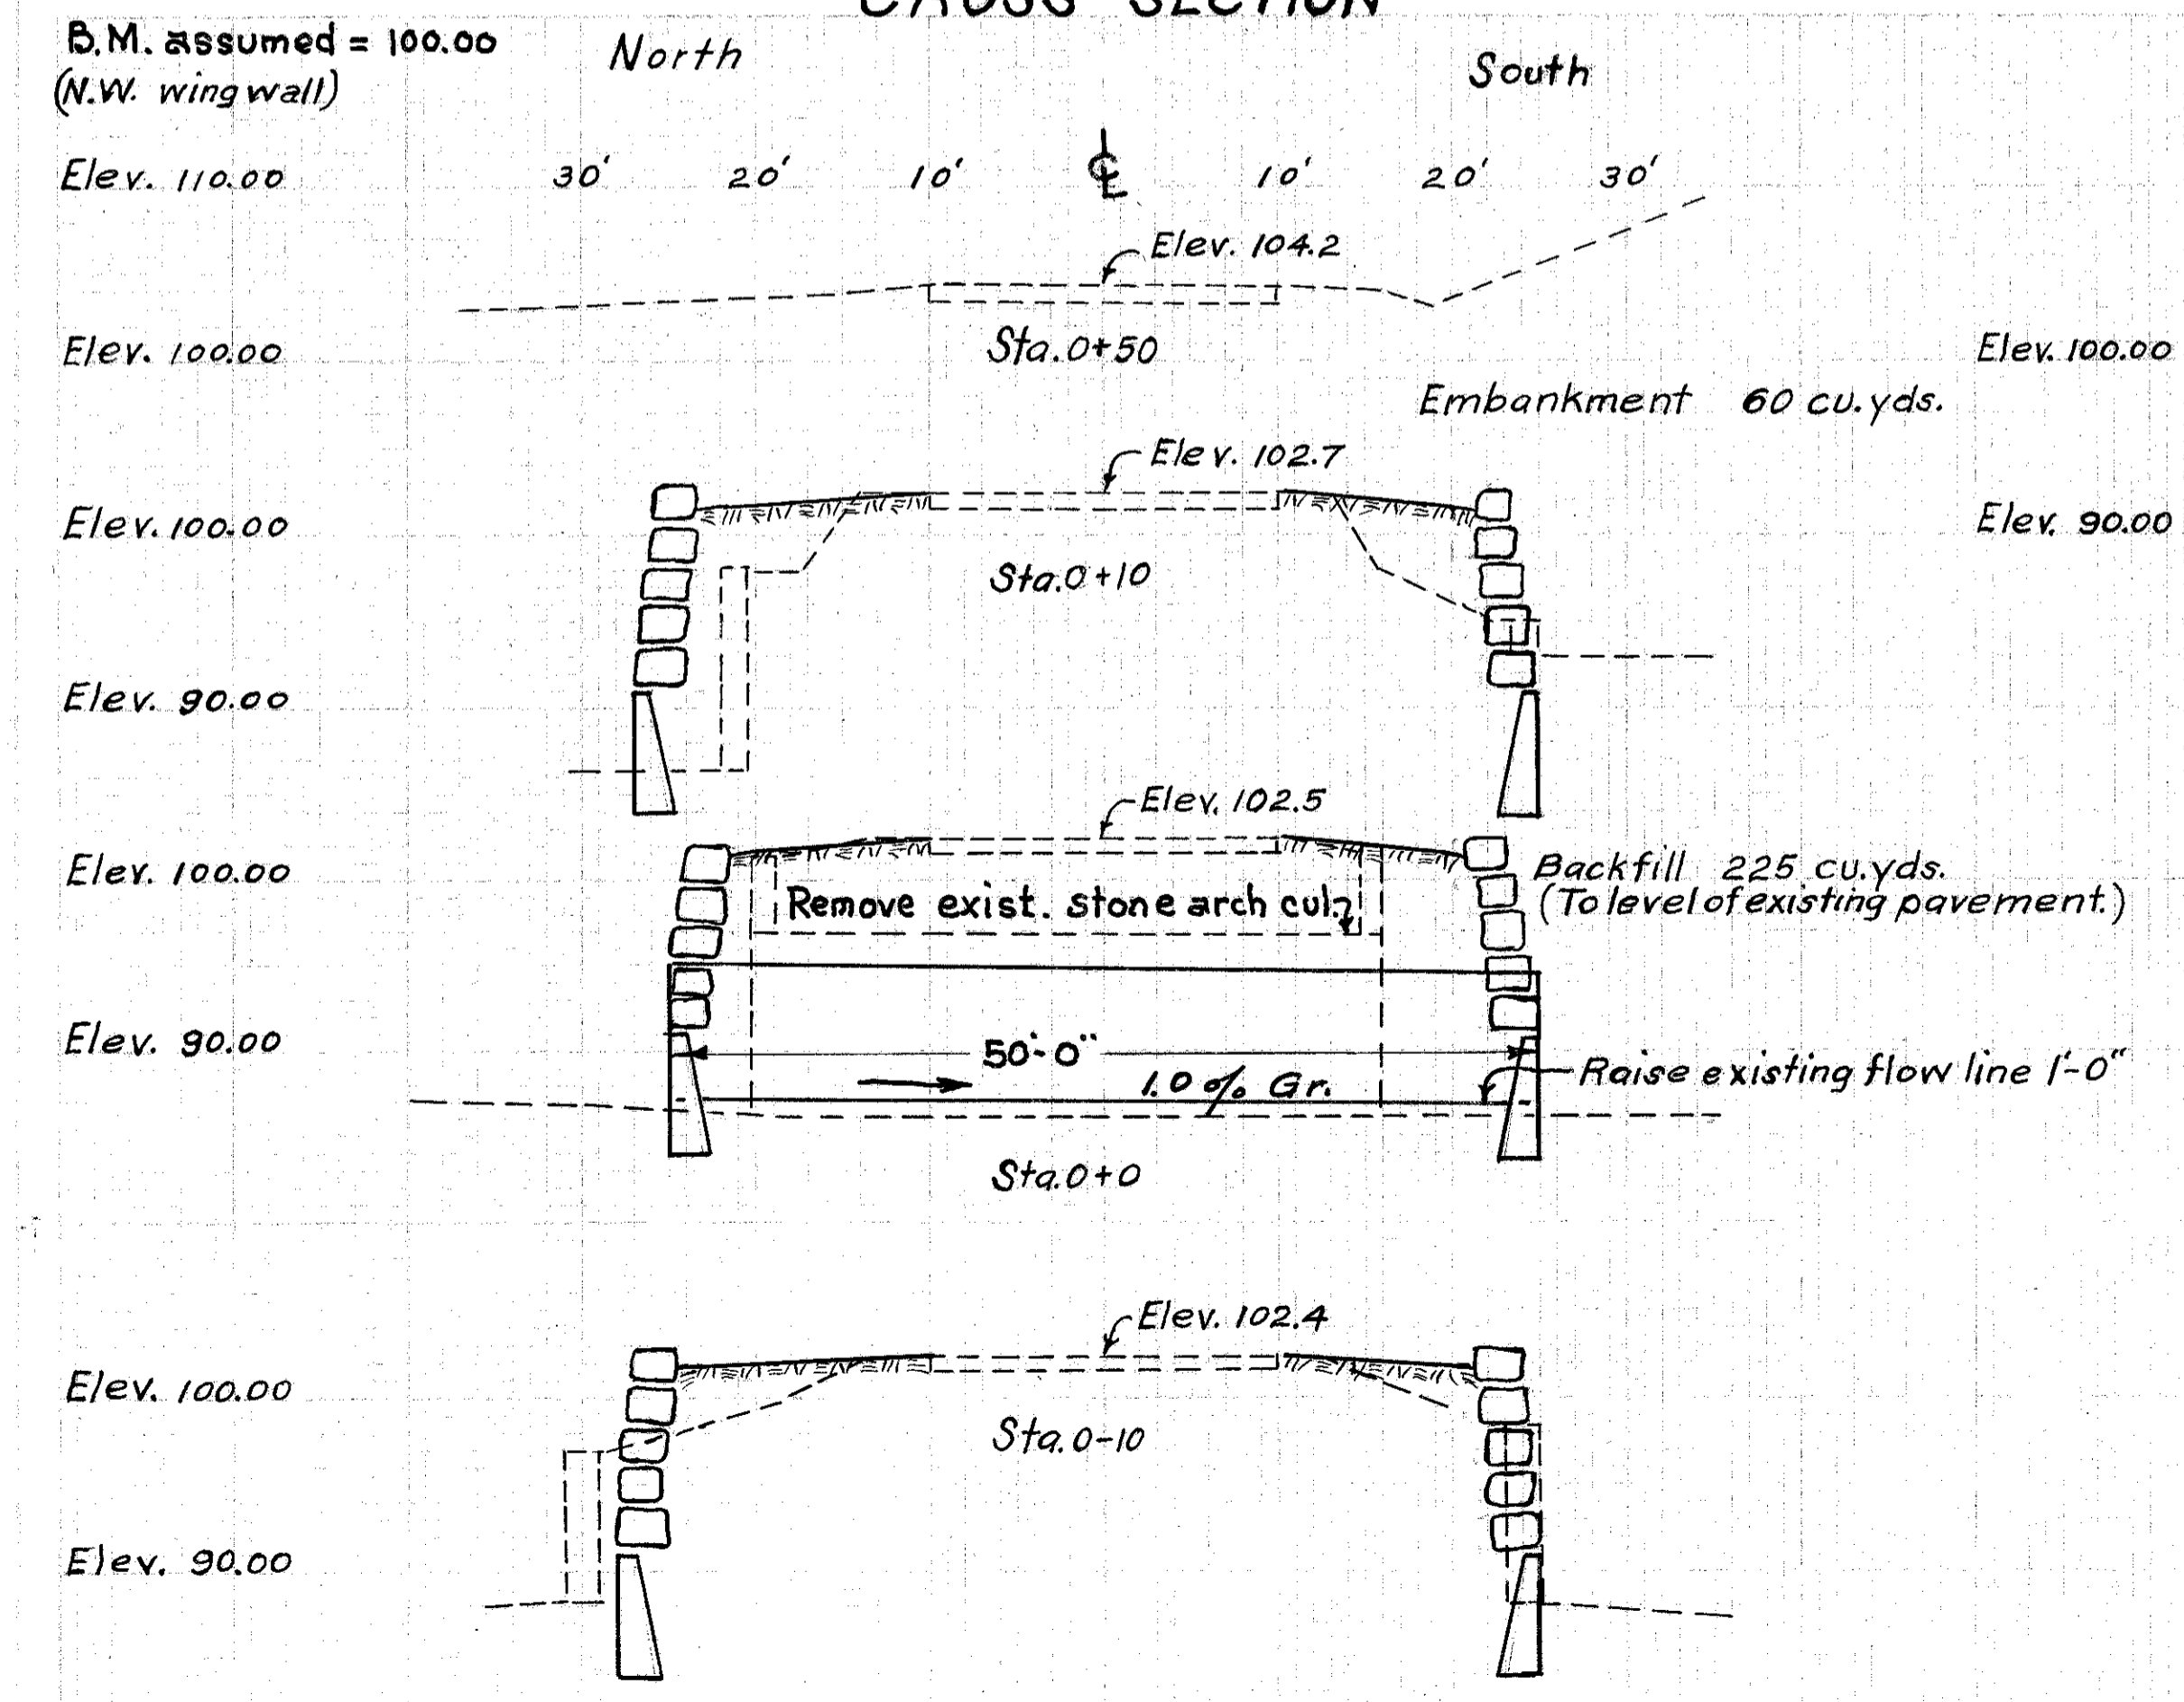 CROSS SECTION
B.M. assumed = 100.00
(N.W. wing wall)
North
South
Elev. 110.00
30' 20' 10' ℄ 10' 20' 30'
Elev. 104.2
Elev. 100.00
Sta. 0+50
Elev. 100.00
Embankment 60 cu.yds.
Elev. 102.7
Elev. 100.00
Elev. 90.00
Sta. 0+10
Elev. 90.00
Elev. 102.5
Elev. 100.00
Backfill 225 cu.yds.
(To level of existing pavement.)
Remove exist. stone arch cul.
Elev. 90.00
50'-0"
Raise existing flow line 1'-0"
1.0% Gr.
Sta. 0+0
Elev. 102.4
Elev. 100.00
Sta. 0-10
Elev. 90.00